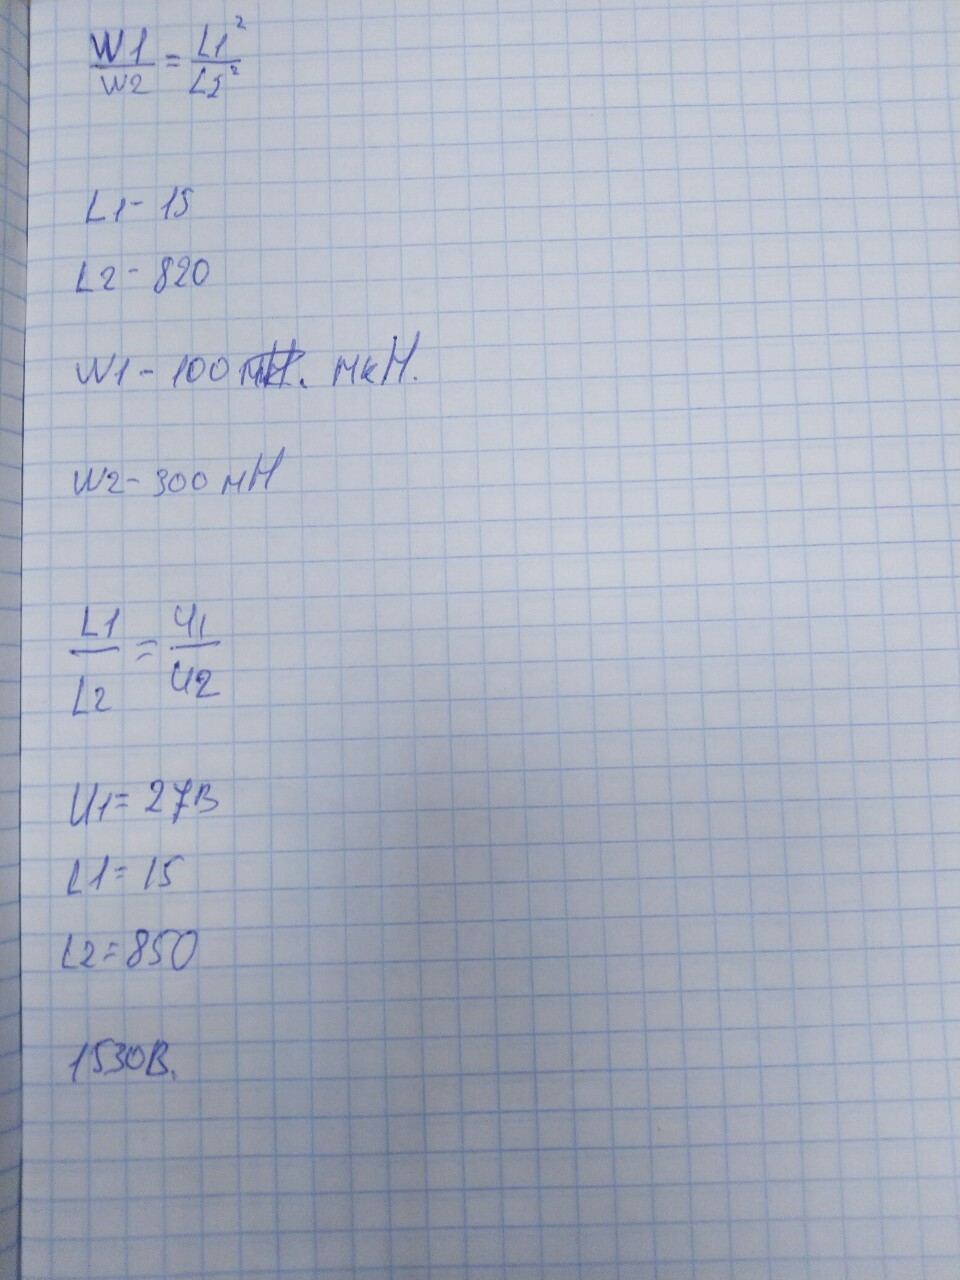 W1/W2 = L1²/L2²
L1 - 15
L2 - 820
W1 - 100 мкН.
W2 - 300 мН
L1/L2 = U1/U2
U1 = 27В
L1 = 15
L2 = 850
1530В.